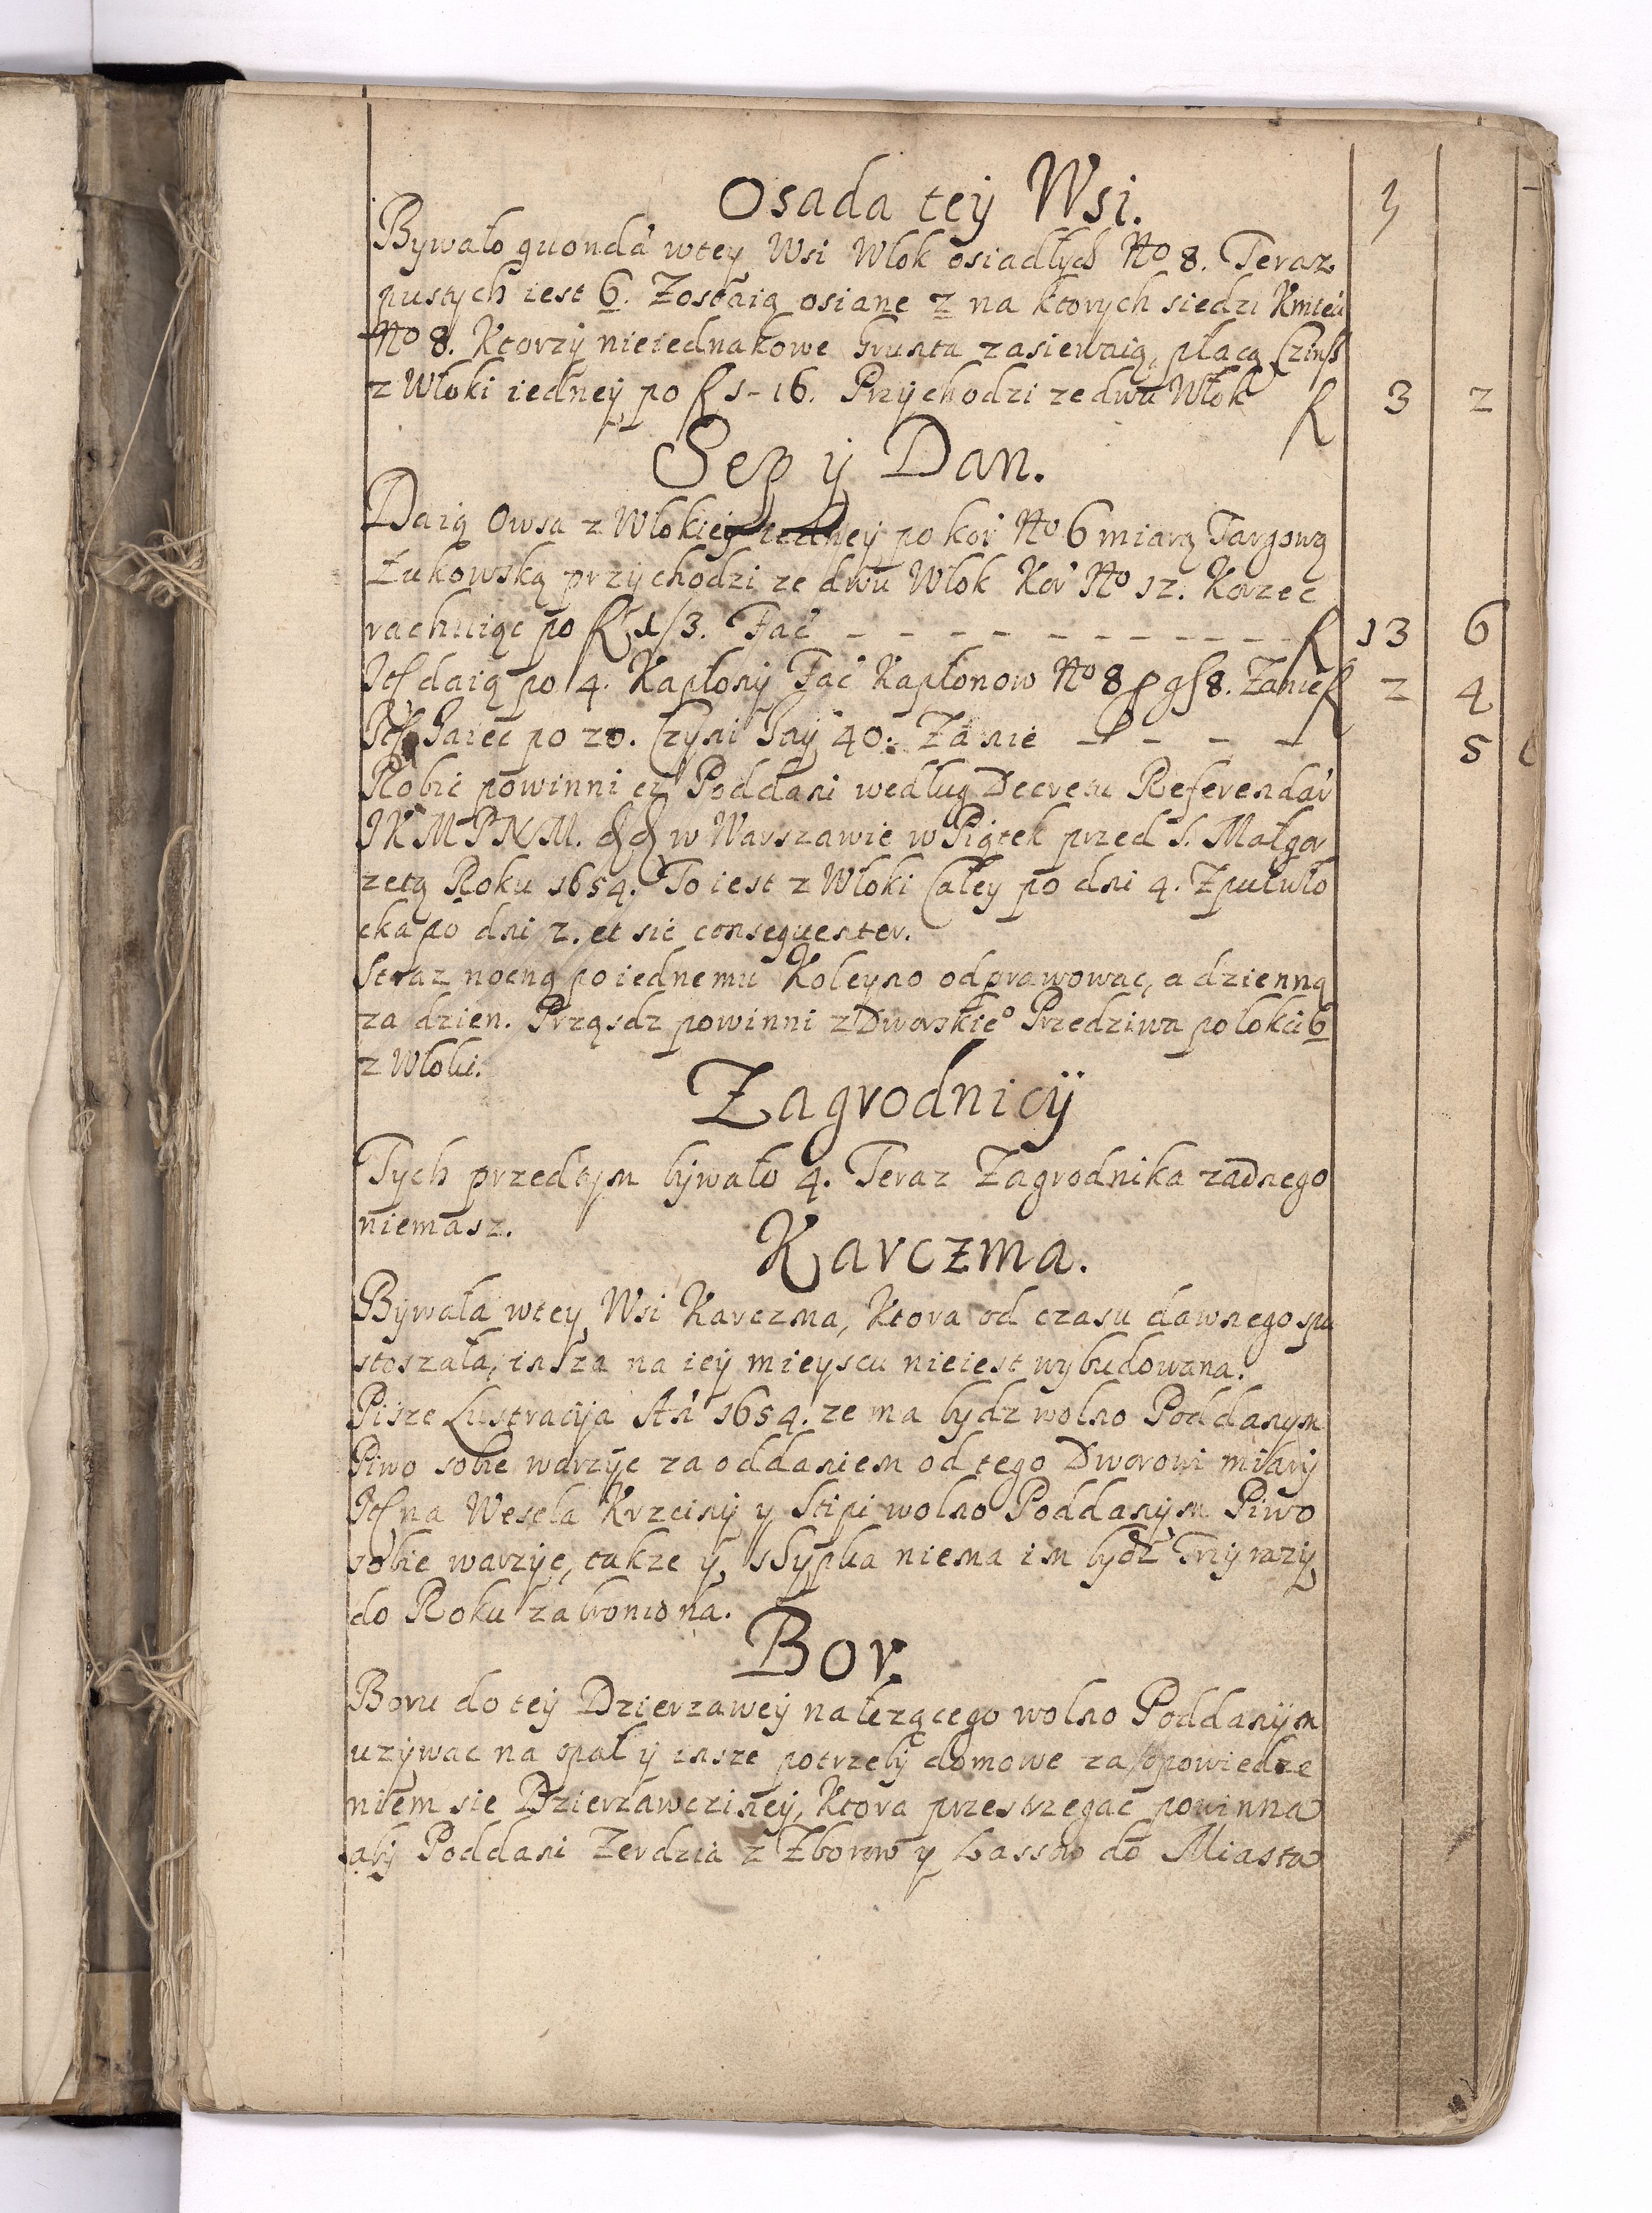 Osada teÿ Wsi.
Bywało quondā wtey Wsi Włok osiadłych No 8. Teraz
pustych iest 6. Zostaią osiane 2 na ktorych siedzi Kmieci
No 8. Ktorzÿ nieiednakowe Grunta zasiewaią, płacą Czinß
z Włoki iedneÿ po fl 1-16. Przÿchodzi ze dwu Włok fl 3 2
Sep ÿ Dan.
Daią Owsa z Włokieÿ iedney po kor No 6 miarą Targową
Łukowską przÿchodzi ze dwu Włok Kor No 12. Korzec
rachuiąc po fl 1/3. Fać - - - - - - - - - - fl 13 6
It daią po 4. Kapłonÿ Fać Kapłonow No 8 p gß 8. Zanie fl 2 4
It Jaiec po 20. Czyni Jaÿ 40. Za nie - - - - 5
Robić powinni ci Poddani według Decretu Referendar
JKMPNM. w Warszawie w Piątek przed S. Małgor
zetą Roku 1654. To iest z Włoki Całey po dni 4. Zpułwło
cka po dni 2. et sic consequenter.
Straz nocną poiednemu Koleyno odprawowac, a dzienną
za dzien. Prząsdz powinni z Dworskieo Przedziwa po łokci 6
z Włoki.
Zagrodnicÿ
Tych przedtym bÿwało 4. Teraz Zagrodnika zadnego
niemasz.
Karczma.
Bÿwała wtey Wsi Karczma, Ktora od czasu dawnego spu
stoszała, insza na ieÿ mieyscu nieiest wybudowana.
Pisze Lustracÿa An 1654. ze ma bydz wolno Poddanym
Piwo sobie warzÿc za oddaniem od tego Dworowi miarÿ
It na Wesela Krzcinÿ y Stipi wolno Poddanÿm Piwo
sobie warzÿc, takze ÿ sSypka niema im bydz Trzÿ razÿ
do Roku zabroniona.
Bor.
Boru do teÿ Dzierzaweÿ nalezącego wolno Poddanÿm
uzÿwac na opał ÿ insze potrzebÿ domowe za opowiedze
niem sie Dzierzawczineÿ, Ktora przestrzegać powinna
abÿ Poddani Zerdzia z Zborow y Lassow do Miasta